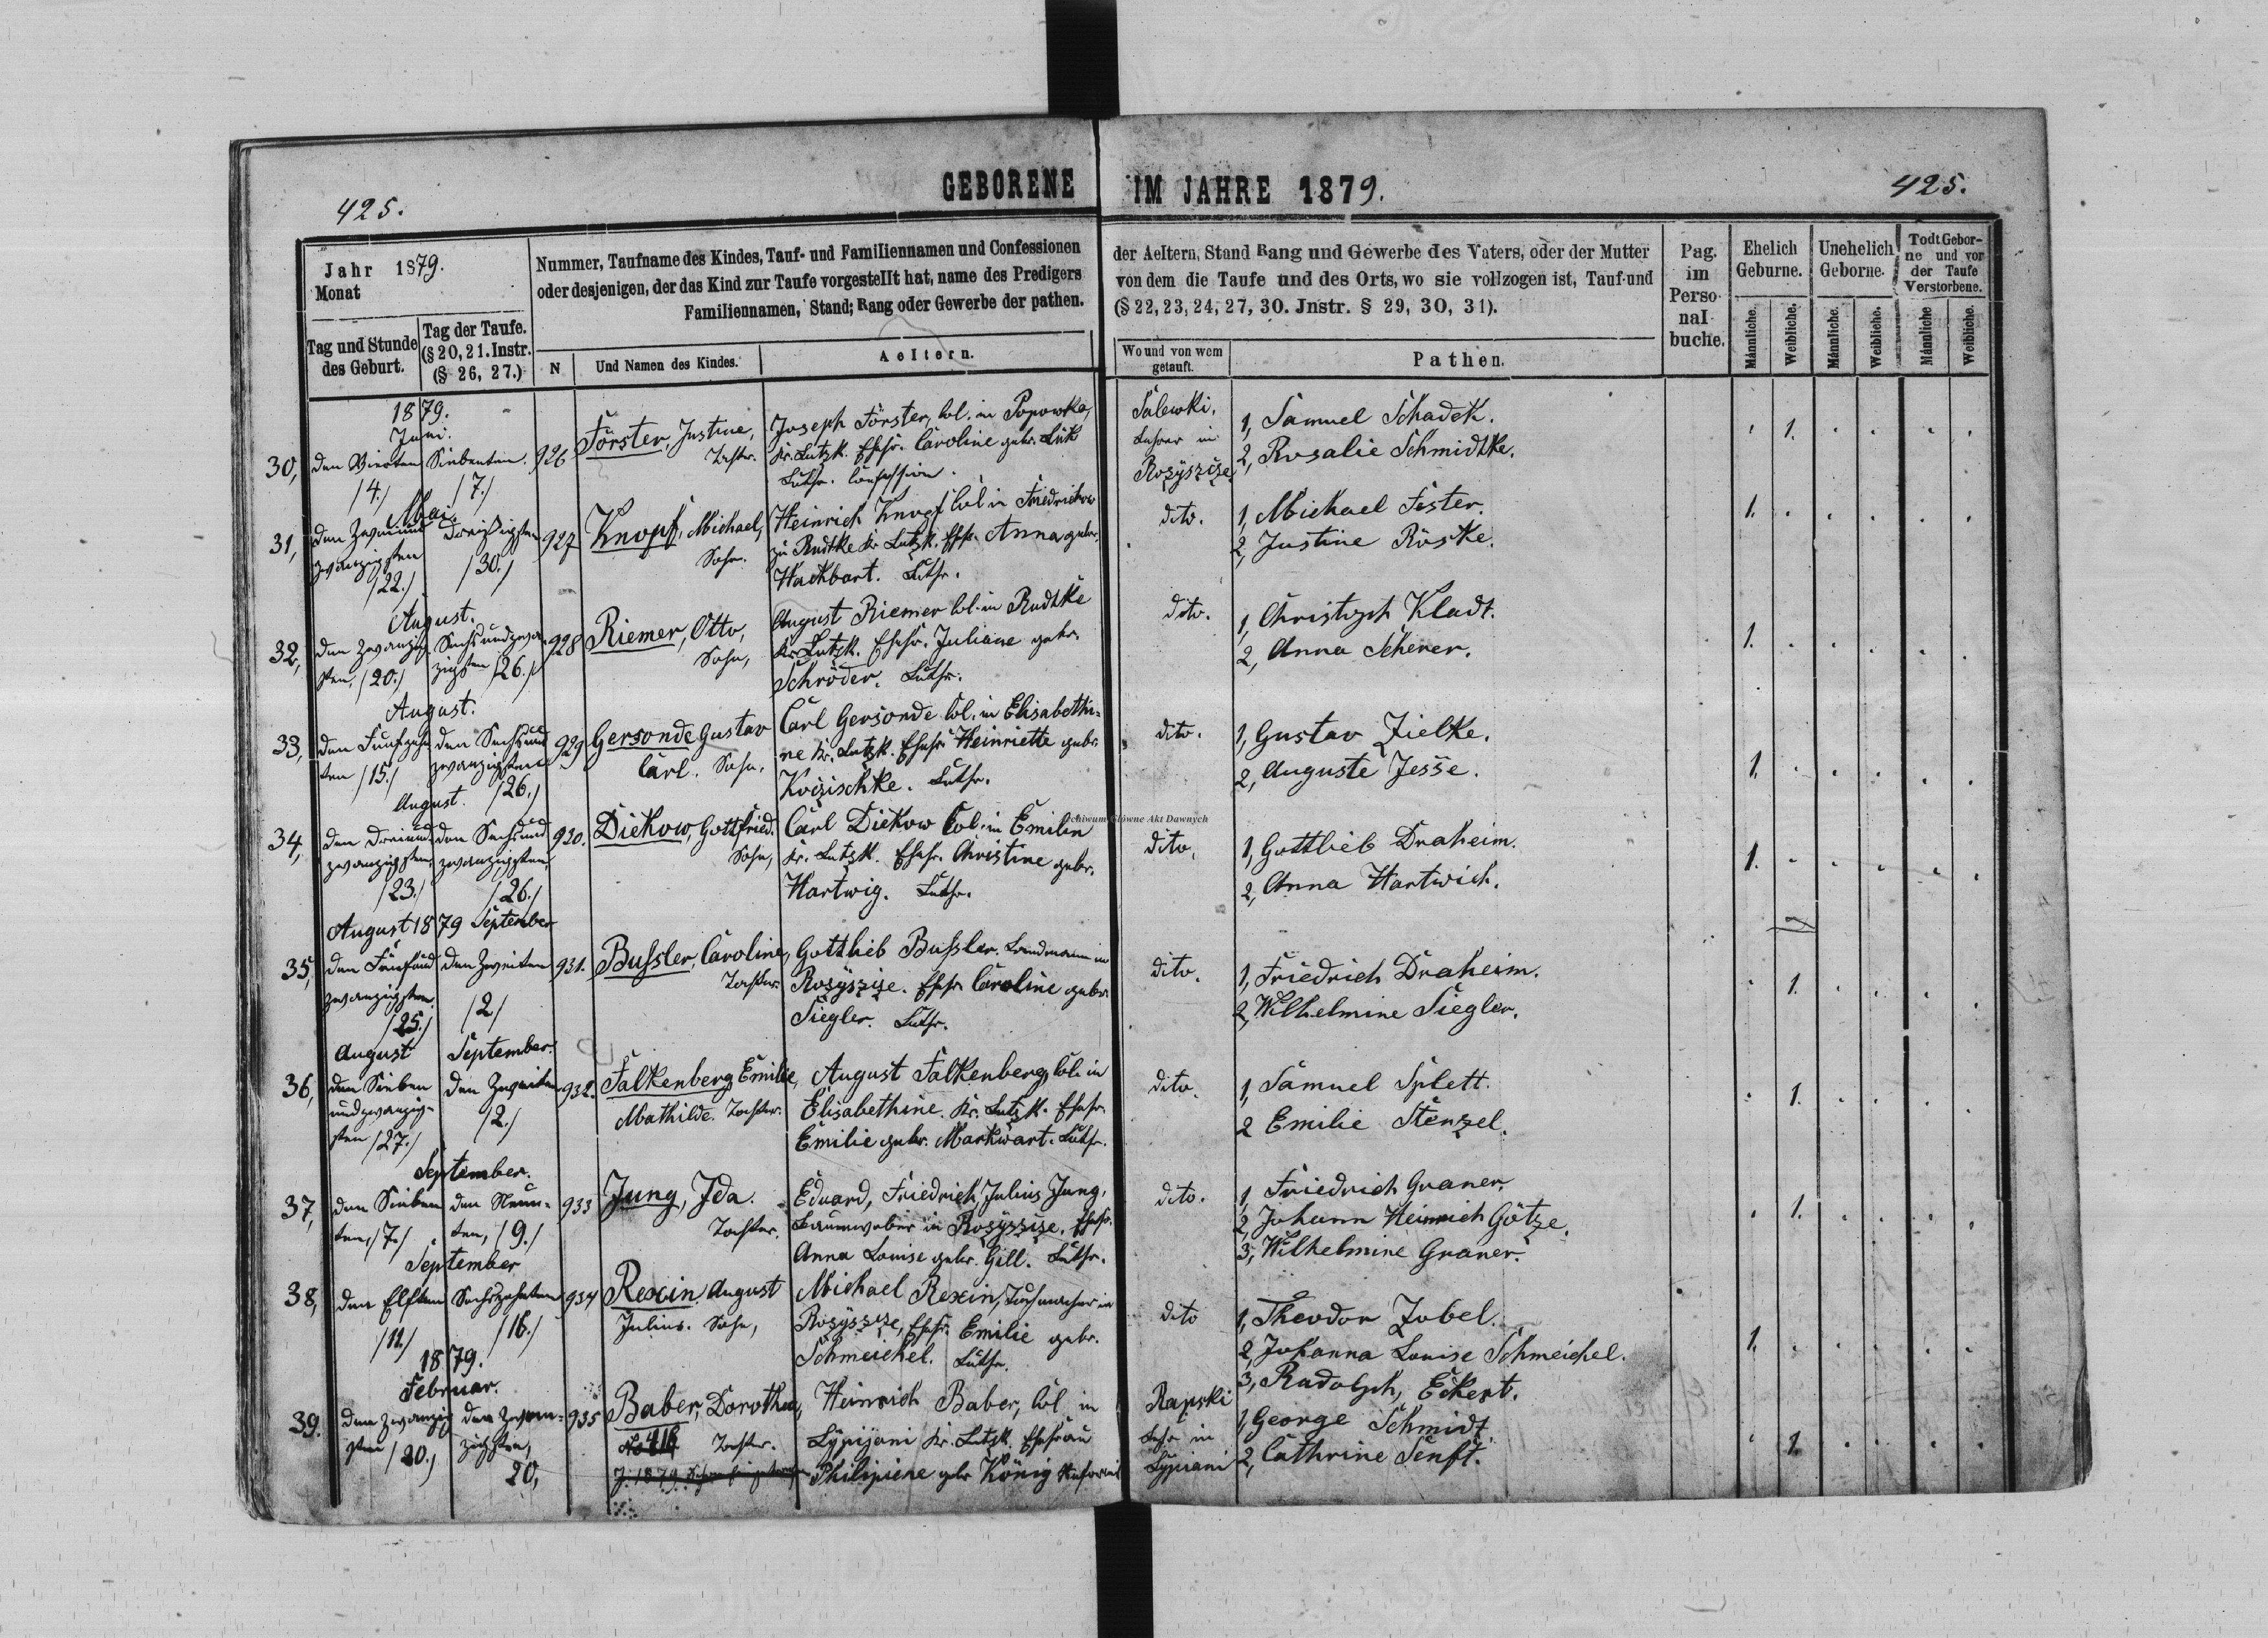 GEBORENE IM JAHRE 1879.
425.
425.
Jahr 1879.
Monat
Tag und Stunde
des Geburt.
Tag der Taufe.
(§ 20, 21. Instr.
(§ 26, 27.)
Nummer, Taufname des Kindes, Tauf- und Familiennamen und Confessionen
oder desjenigen, der das Kind zur Taufe vorgestellt hat, name des Predigers
Familiennamen, Stand; Rang oder Gewerbe der pathen.
N
Und Namen des Kindes.
Aeltern.
der Aeltern, Stand Rang und Gewerbe des Vaters, oder der Mutter
von dem die Taufe und des Orts, wo sie vollzogen ist, Tauf-und
(§ 22, 23, 24, 27, 30. Jnstr. § 29, 30, 31).
Wo und von wem
getauft.
Pathen.
Pag.
im
Perso-
nal-
buche.
Ehelich
Geburne.
Unehelich
Geborne.
Todt Gebor-
ne und vor
der Taufe
Verstorbene.
Männliche.
Weibliche.
Männliche.
Weibliche.
Männliche
Weibliche.
1879.
Juni.
30, den Vierten Siebenten. 926
/4./ /7./
Förster, Justine,
Tochter.
Joseph Förster, Col. in Popowka,
Kr. Lutzk. Ehefr. Caroline gebr. Lük
Luthr. Confession.
Salewki,
Lehrer in
Rozyszcze
1, Samuel Schadek.
2, Rosalie Schmidtke.
1.
Mai.
31, den Zweiund Dreißigsten 927
zwanzigsten /30./
/22./
Knopf, Michael,
Sohn.
Heinrich Knopf Col in Friedrichow
zu Rudtke Kr Lutzk. Ehfr. Anna gebr.
Hackbart. Luthr.
dito.
1, Michael Fester.
2, Justine Röske.
1.
August.
32, den Zwanzig Sechsundzwan 928
sten, /20./ zigsten /26./
Riemer, Otto,
Sohn,
August Riemer Col. in Rudtke
Kr. Lutzk. Ehefr. Juliane gebr.
Schröder. Luthr.
dito.
1, Christoph Kladt.
2, Anna Scherer.
1.
August.
33, den Fünfzehn den Sechsund 929
ten /15./ zwanzigsten
/26./
Gersonde Gustav
Carl. Sohn,
Carl Gersonde Col. in Elisabethi-
ne Kr. Lutzk. Ehefr. Heinriette gebr.
Koizischke. Luthr.
dito.
1, Gustav Zielke.
2, Auguste Jesse.
1.
August.
34, den Dreiund den Sechsund 930.
zwanzigsten, zwanzigsten,
/23./ /26./
Diekow, Gottfried.
Sohn,
Carl Diekow Col. in Emilin
Kr. Lutzk. Ehefr. Christine gebr.
Hartwig. Luthr.
Archiwum Główne Akt Dawnych
dito,
1, Gottlieb Draheim.
2, Anna Hartwich.
1.
August 1879 September
35, den Fünfund den Zweiten 931.
zwanzigsten, /2/
/25./
Bußler, Caroline,
Tochter.
Gottlieb Bußler. Landmann in
Rozyszcze. Ehefr. Caroline gebr.
Siegler. Luthr.
dito.
1, Friedrich Draheim.
2, Wilhelmine Siegler.
1.
August September.
36, den Sieben den Zweiten 932.
undzwanzig- /2./
sten /27./
Falkenberg Emilie,
Mathilde. Tochter.
August Falkenberg, Col. in
Elisabethine. Kr. Lutzk. Ehefr.
Emilie gebr. Markwart. Luthr.
dito.
1, Samuel Splett.
2 Emilie Stenzel.
1.
September.
37, den Sieben den Neun- 933
ten, /7./ ten, /9./
Jung, Ida.
Tochter.
Eduard, Friedrich, Julius Jung,
Baumweber in Rozyszcze. Ehefr.
Anna Louise gebr. Gill. Luthr.
dito.
1, Friedrich Graner,
2, Johann Heinrich Götze.
3, Wilhelmine Graner.
1.
September
38, den Elften Sechszehnten 934
/11./ /16./
Rexin August
Julius. Sohn,
Michael Rexin, Tuchmacher in
Rozyszcze, Ehefr. Emilie gebr.
Schmeichel. Luthr.
dito
1, Theodor Zobel.
2, Johanna Louise Schmeichel.
3, Rudolph, Eckert.
1.
1879.
Februar.
39. den Zwanzig den Zwan- 935
sten /20./ zigsten,
20,
Baber, Dorothea,
Tochter.
Heinrich Baber, Col in
Lypijani Kr. Lutzk. Ehefrau
Philipiene gebr König
Rapski
Lehr in
Lypiani
1, George Schmidt.
2, Cathrine Senft.
1.